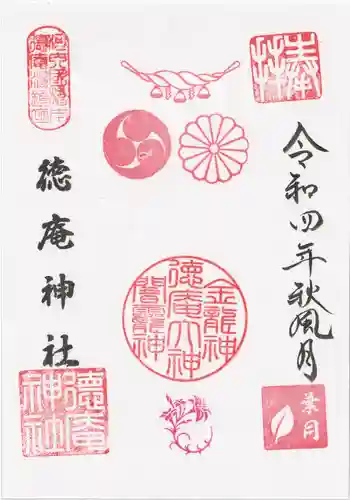 奉
拝
令和四年秋風月
葉月
金龍神
徳庵大神
闇龗神
徳庵神社
徳庵
神社